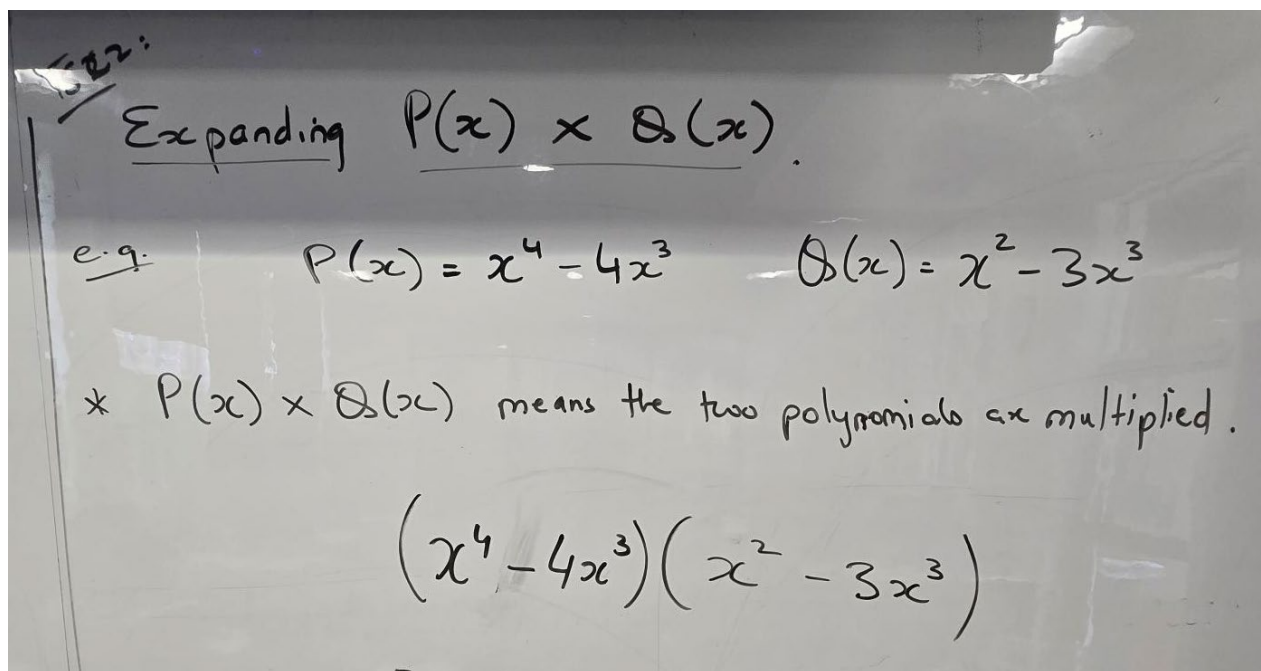 Expanding P(x) × Q(x).
e.g. P(x) = x⁴ – 4x³ Q(x) = x² – 3x³
* P(x) × Q(x) means the two polynomials are multiplied.
(x⁴ – 4x³)(x² – 3x³)